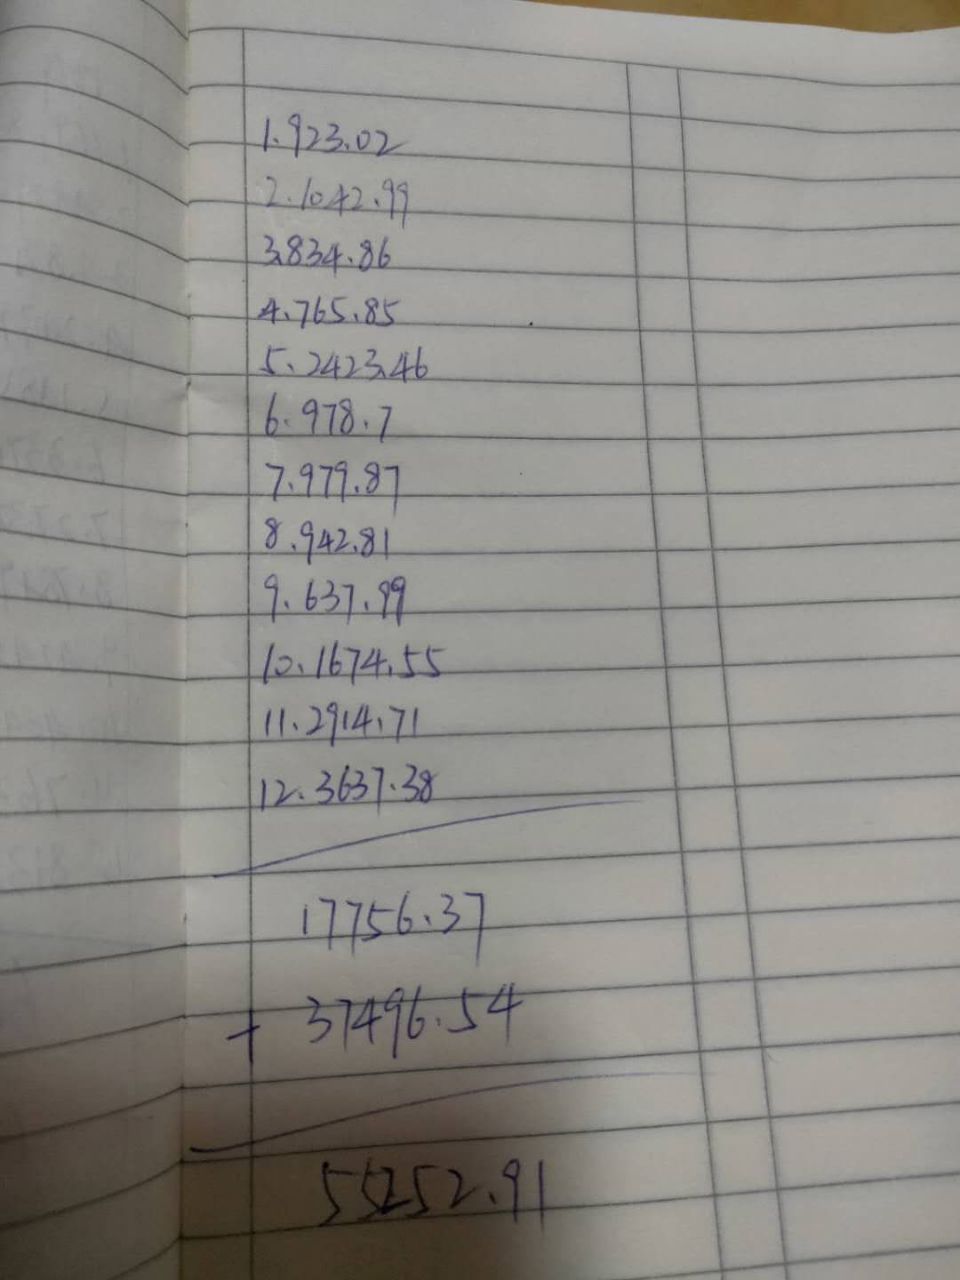 1.923.02
2.1042.99
3.834.86
4.765.85
5.2423.46
6.978.7
7.979.87
8.942.81
9.637.99
10.1674.55
11.2914.71
12.3637.38
17756.37
+ 37496.54
55252.91